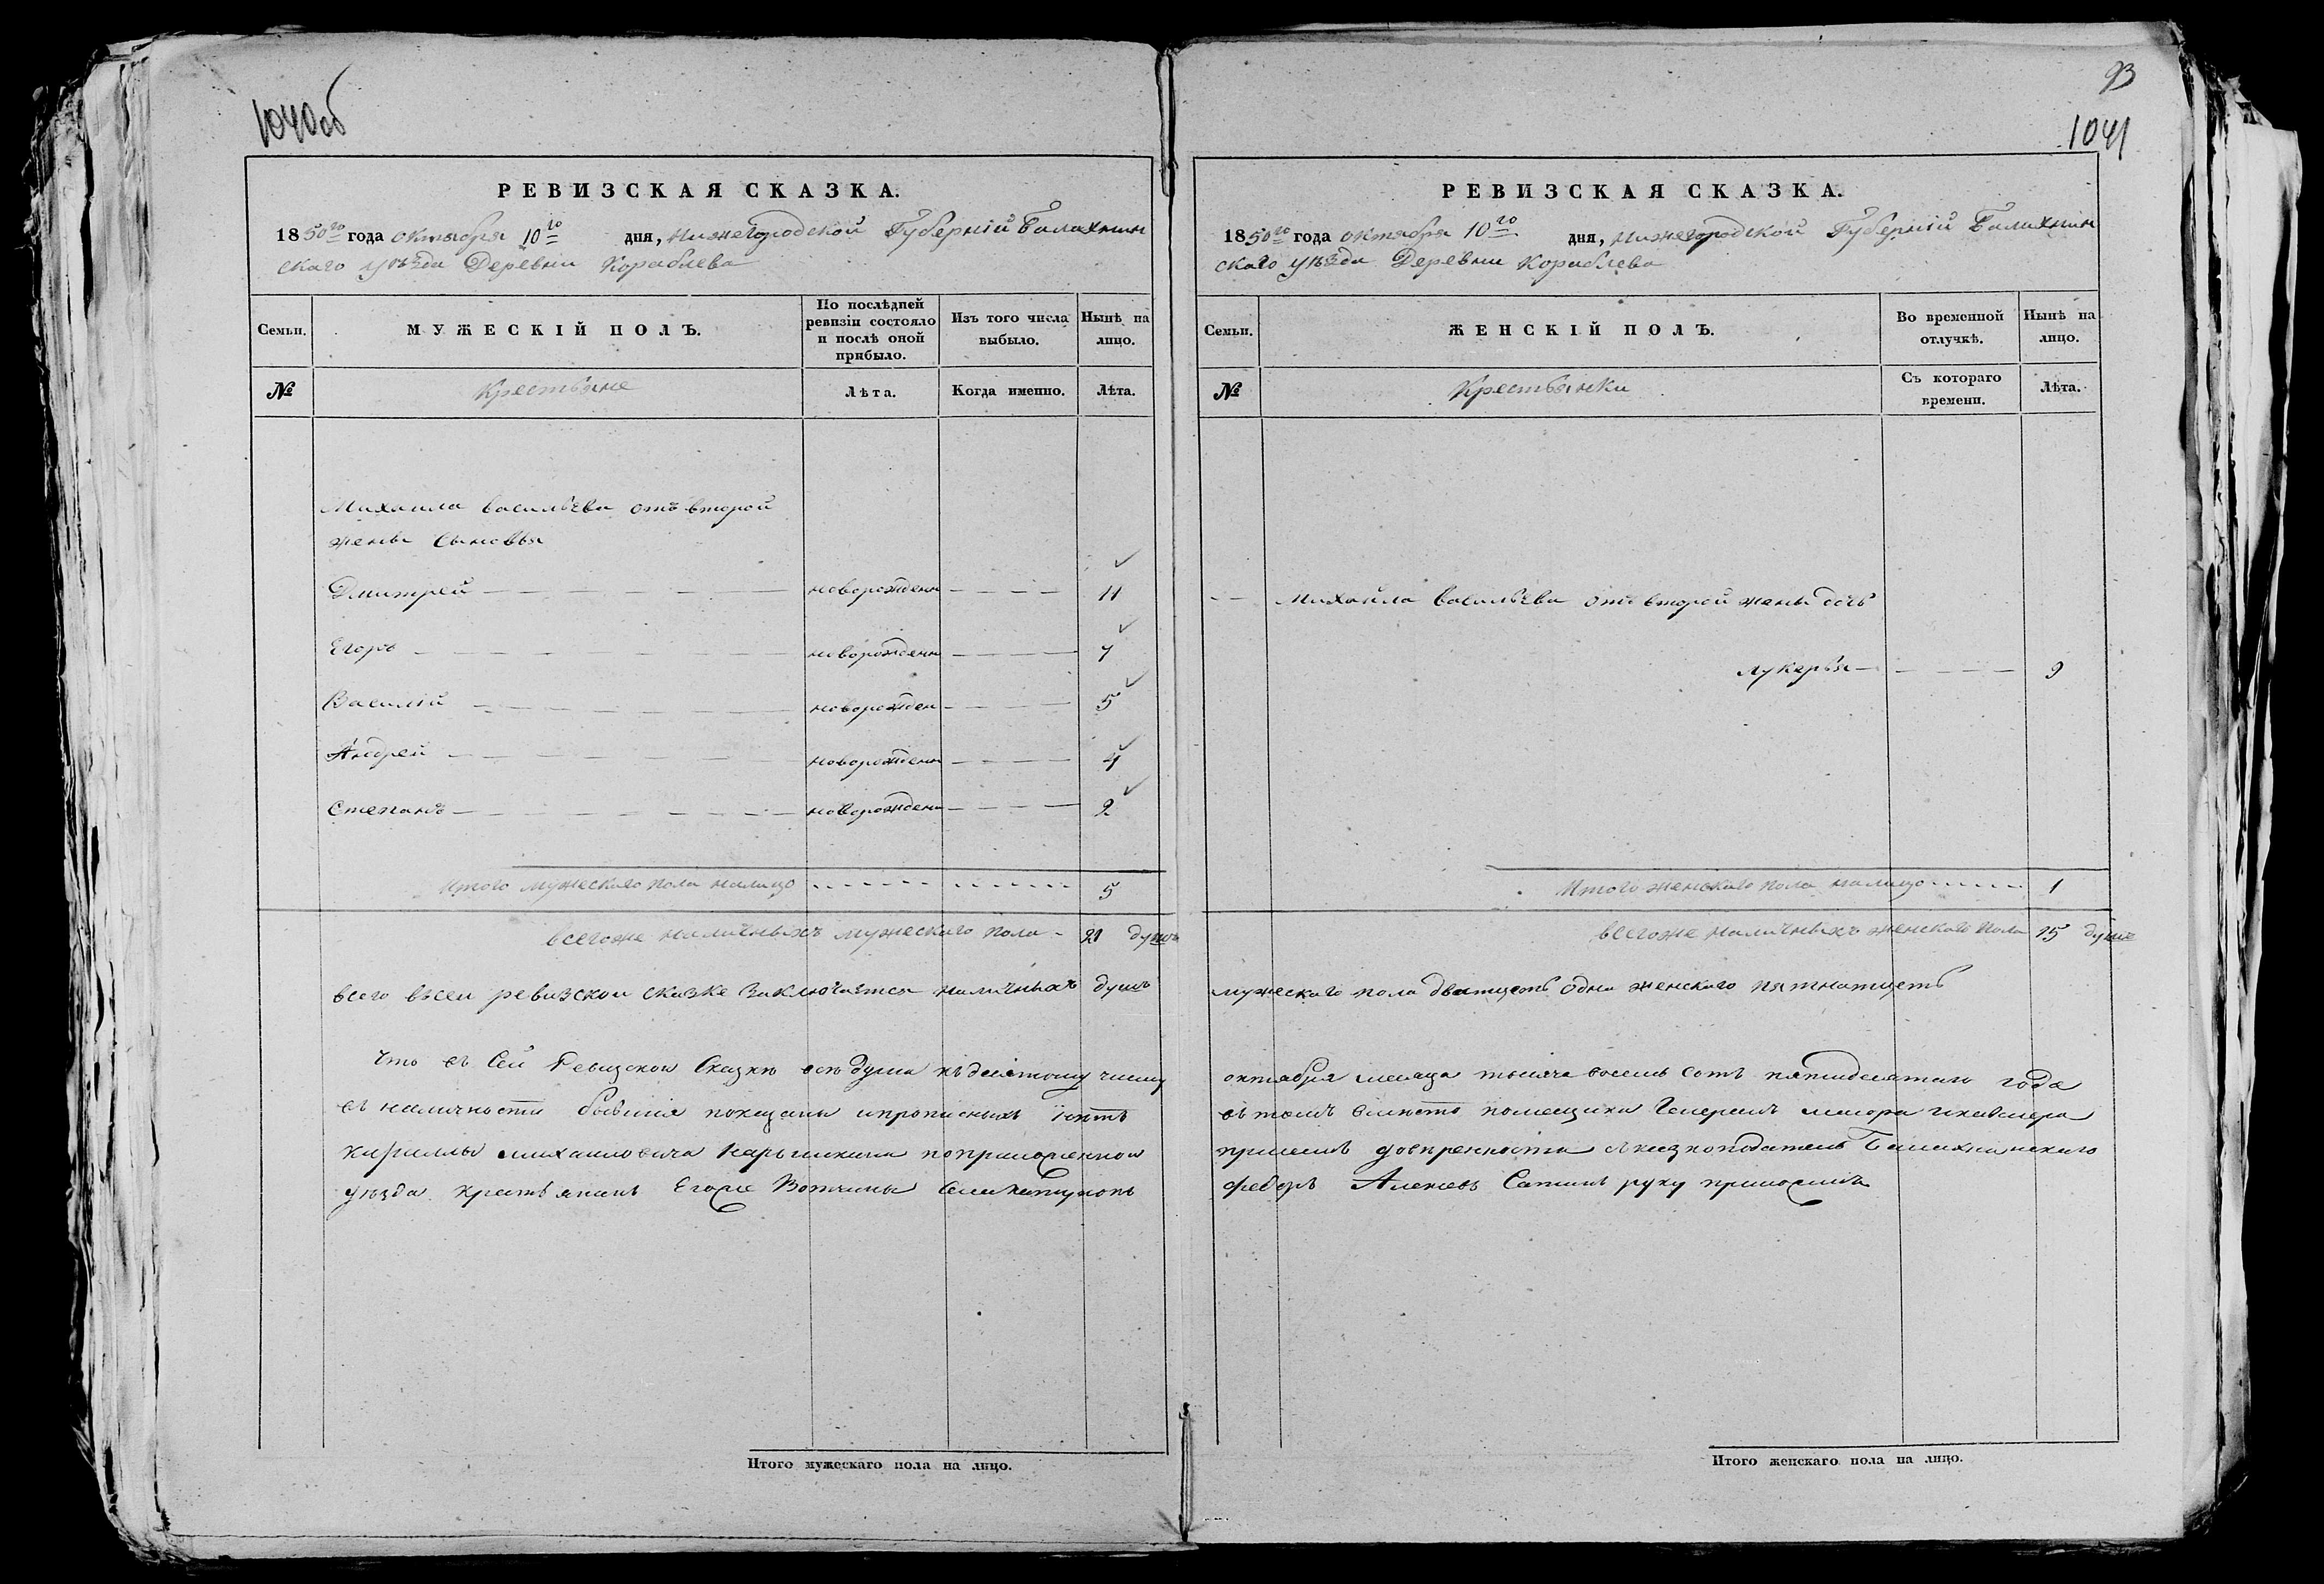 1040об
РЕВИЗСКАЯ СКАЗКА.
1850го года октября 10го дня, Нижегородской Губерній Балахнин
скаго уѣзда Деревни Кораблева
Семьи.
МУЖЕСКІЙ ПОЛЪ.
По послѣдней ревизіи состояло и послѣ оной прибыло.
Изъ того числа выбыло.
Нынѣ на лицо.
№
Крестьяне
Лѣта.
Когда именно.
Лѣта.
Михаила Васильева отъ второй
жены сыновья
Дмитрей новорожденн 11
Егоръ новорожденн 7
Василій новорожден 5
Андрей новорожденн 4
Степанъ новорожденн 2
Итого мужескаго пола налицо 5
всегоже наличныхъ мужескаго пола 21 душъ
всего всеи ревизскои сказке заключается наличныхъ душъ
Что въ Сей Ревизской Сказке все души къ десятому числу
въ наличности бывшія показаны и прописныхъ нѣтъ
Кириллы Михаиловича Нарышкина поприложенной
уѣзда крестьянинъ Егоже Вотчины
Итого мужескаго пола на лицо.
93
1041
РЕВИЗСКАЯ СКАЗКА.
1850го года октября 10го дня, Нижегородской Губерній Балахнин
скаго уѣзда Деревни Кораблева
Семьи.
ЖЕНСКІЙ ПОЛЪ.
Во временной отлучкѣ.
Нынѣ на лицо.
№
Крестьянки
Съ котораго времени.
Лѣта.
Михайла Васильева отъ второй жены дочь
Лукерья 9
Итого женскаго пола налицо 1
всегоже наличныхъ женскаго пола 15 душъ
мужескаго пола дватцеть одна женскаго пятнатцеть
октября месяца тысяча восемь сотъ пятидесятаго года
въ томъ вместо помещика Генералъ маиора икавалера
Балахнинскаго
Сатинъ руку приложилъ
Итого женскаго пола на лицо.